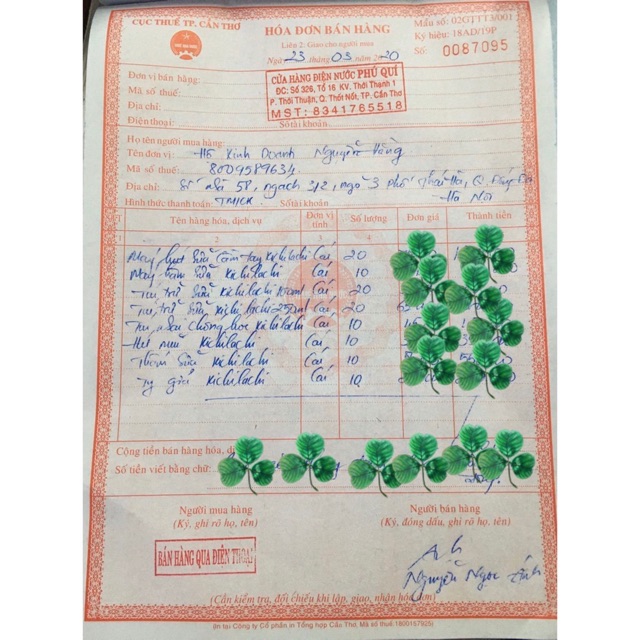 CỤC THUẾ TP. CẦN THƠ
HÓA ĐƠN BÁN HÀNG
Liên 2: Giao cho người mua
Ngày 23 tháng 03 năm 2020
Mẫu số: 02GTTT3/001
Ký hiệu: 18AD/19P
Số: 0087095
Đơn vị bán hàng:
Mã số thuế:
Địa chỉ:
Điện thoại: Số tài khoản
CỬA HÀNG ĐIỆN NƯỚC PHÚ QUÍ
ĐC: Số 326, Tổ 16 KV. Thới Thạnh 1
P. Thới Thuận, Q. Thốt Nốt, TP. Cần Thơ
MST: 8341765518
Họ tên người mua hàng:
Tên đơn vị: Hộ Kinh Doanh Nguyễn Hằng
Mã số thuế: 8009589634
Địa chỉ: Số nhà 58, ngách 312, ngõ 3 phố Thái Hà, Q. Đống Đa
Hà Nội
Hình thức thanh toán: TM/CK Số tài khoản
T Tên hàng hóa, dịch vụ Đơn vị tính Số lượng Đơn giá Thành tiền
Máy hút sữa cầm tay Kichilachi Cái 20
Máy hâm sữa Kichilachi Cái 10
Túi trữ sữa Kichilachi Cái 20
Túi trữ sữa Kichilachi 250ml Cái 20
Kichilachi Cái 10
Hút mũi Kichilachi Cái 10
Kichilachi Cái 10
Ty giả Kichilachi Cái 10
Cộng tiền bán hàng hóa,
Số tiền viết bằng chữ:
đồng.
Người mua hàng
(Ký, ghi rõ họ, tên)
Người bán hàng
(Ký, đóng dấu, ghi rõ họ, tên)
BÁN HÀNG QUA ĐIỆN THOẠI
Nguyễn Ngọc Ánh
(Cần kiểm tra, đối chiếu khi lập, giao, nhận hóa đơn)
(In tại Công ty Cổ phần in Tổng hợp Cần Thơ, Mã số thuế: 1800157925)